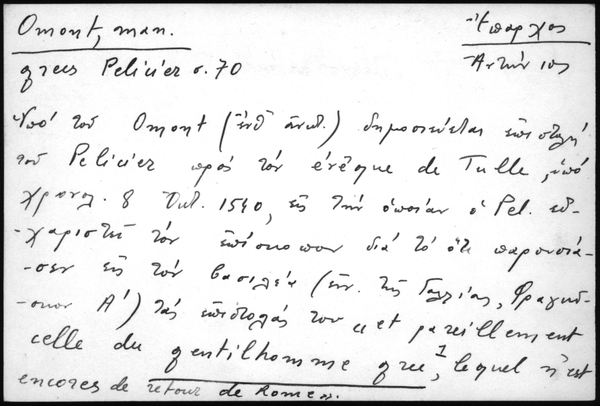 Omont, man. Ἔπαρχος
grecs Pelicier σ. 70 Ἀντώνιος
Ὑπό τοῦ Omont (ἔνθ' ἀνωτ.) δημοσιεύεται ἐπιστολή
τοῦ Pelicier πρός τόν évêque de Tulle, ὑπό
χρονολ. 8 Oct. 1540, εἰς τήν ὁποίαν ὁ Pel. εὐ-
-χαριστεῖ τόν ἐπίσκοπον διά τό ὅτι παρουσία-
-σεν εἰς τόν βασιλέα (ἐν. τῆς Γαλλίας, Φραγκῖ-
-σκον Α') τάς ἐπιστολάς του "et pareillement
celle du gentilhomme grec¹, lequel n'est
encores de retour de Rome".